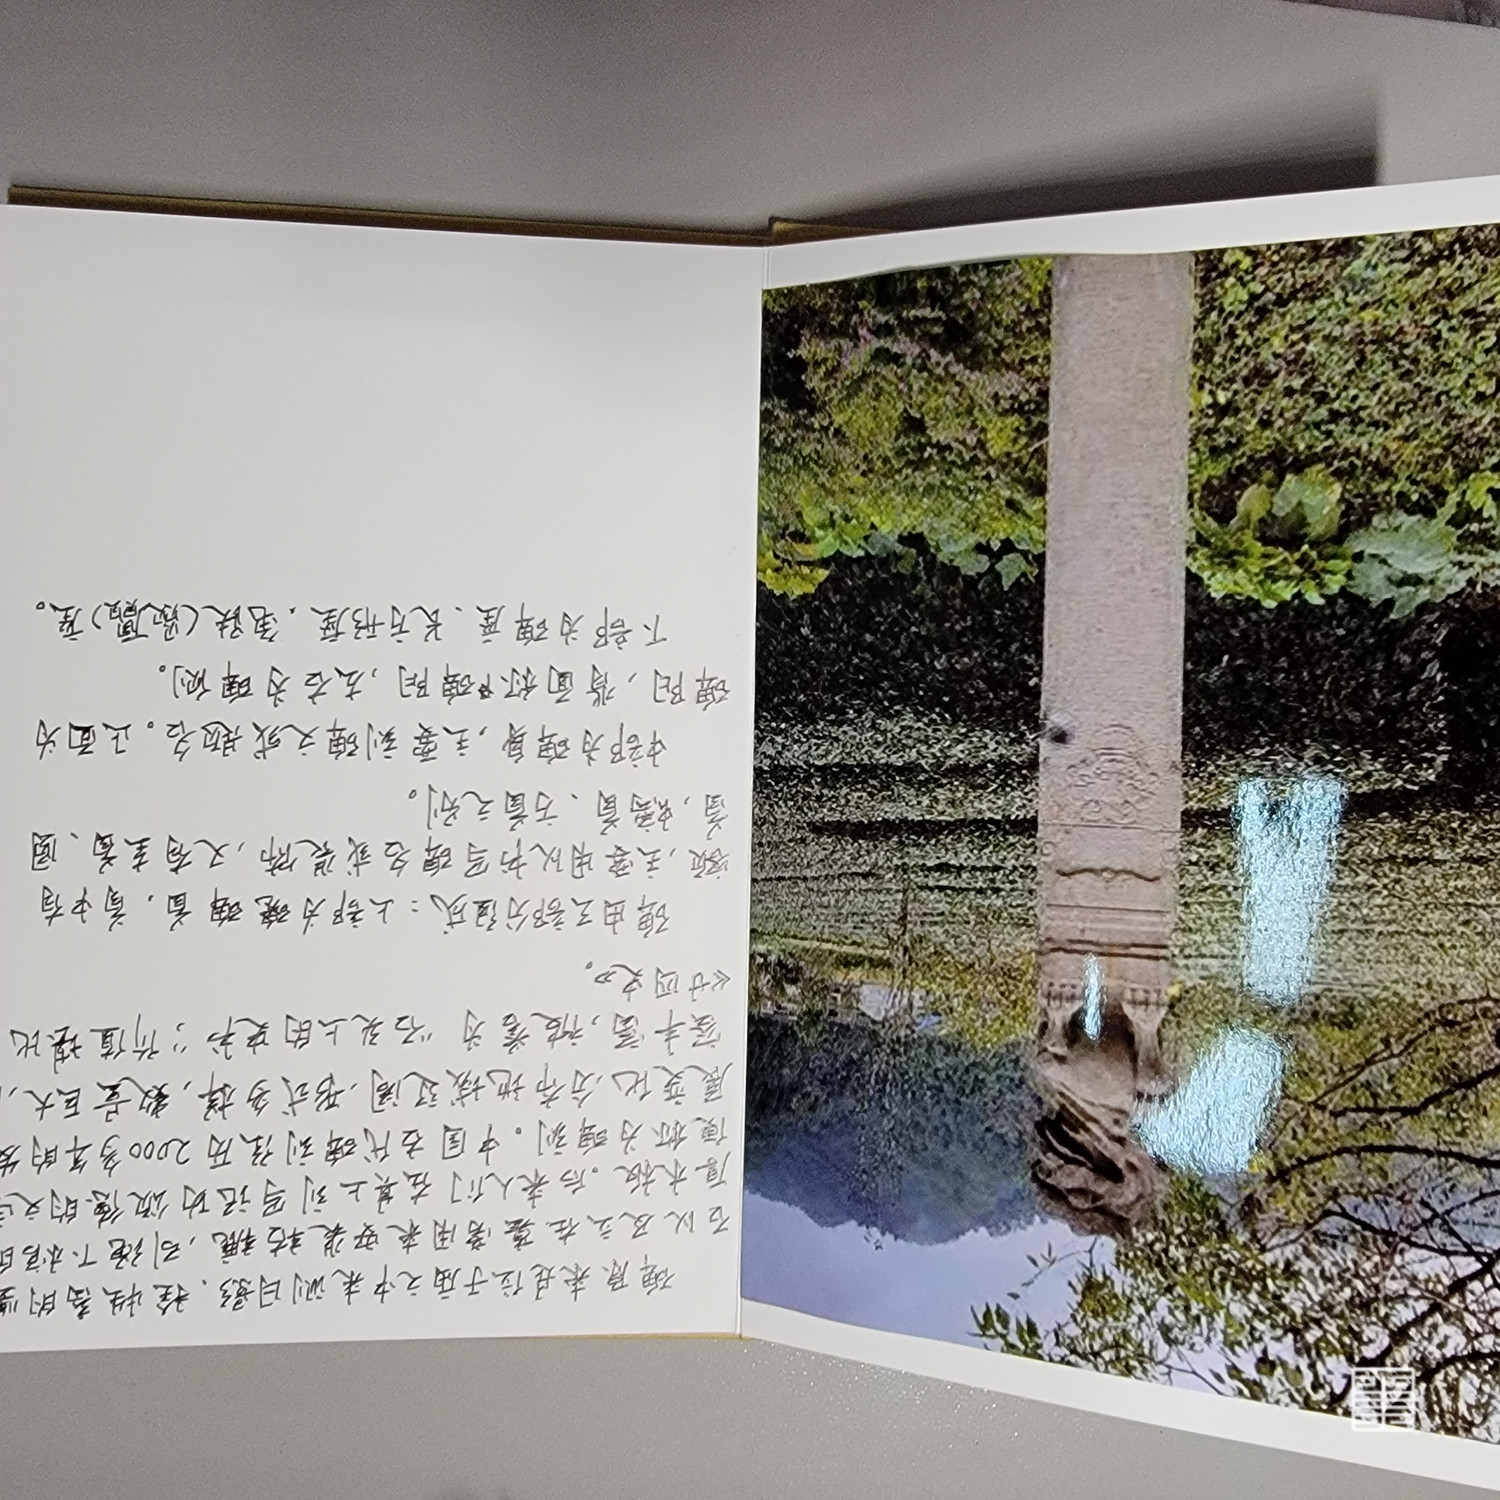 碑原来是位于庙之中来测日影、拴牲畜的竖
石以及立在墓旁用来安装轱辘,引绳下棺的
厚木板。后来人们在其上刻写记功颂德的文字
便称为碑刻。中国古代碑刻经历2000多年的发
展变化,分布地域辽阔,形式多样,数量巨大,
富,被誉为“石头上的史书”,价值堪比
《廿四史》。
碑由三部分组成:上部为碑首,首中有
额,主要用以书写碑名或装饰,又有圭首、圆
首,螭首、方首之别。
中部为碑身,主要刻碑文或题名。正面为
碑阳,背面称碑阴,左右为碑侧。
下部为碑座、长方形座,龟趺(赑屃)座。